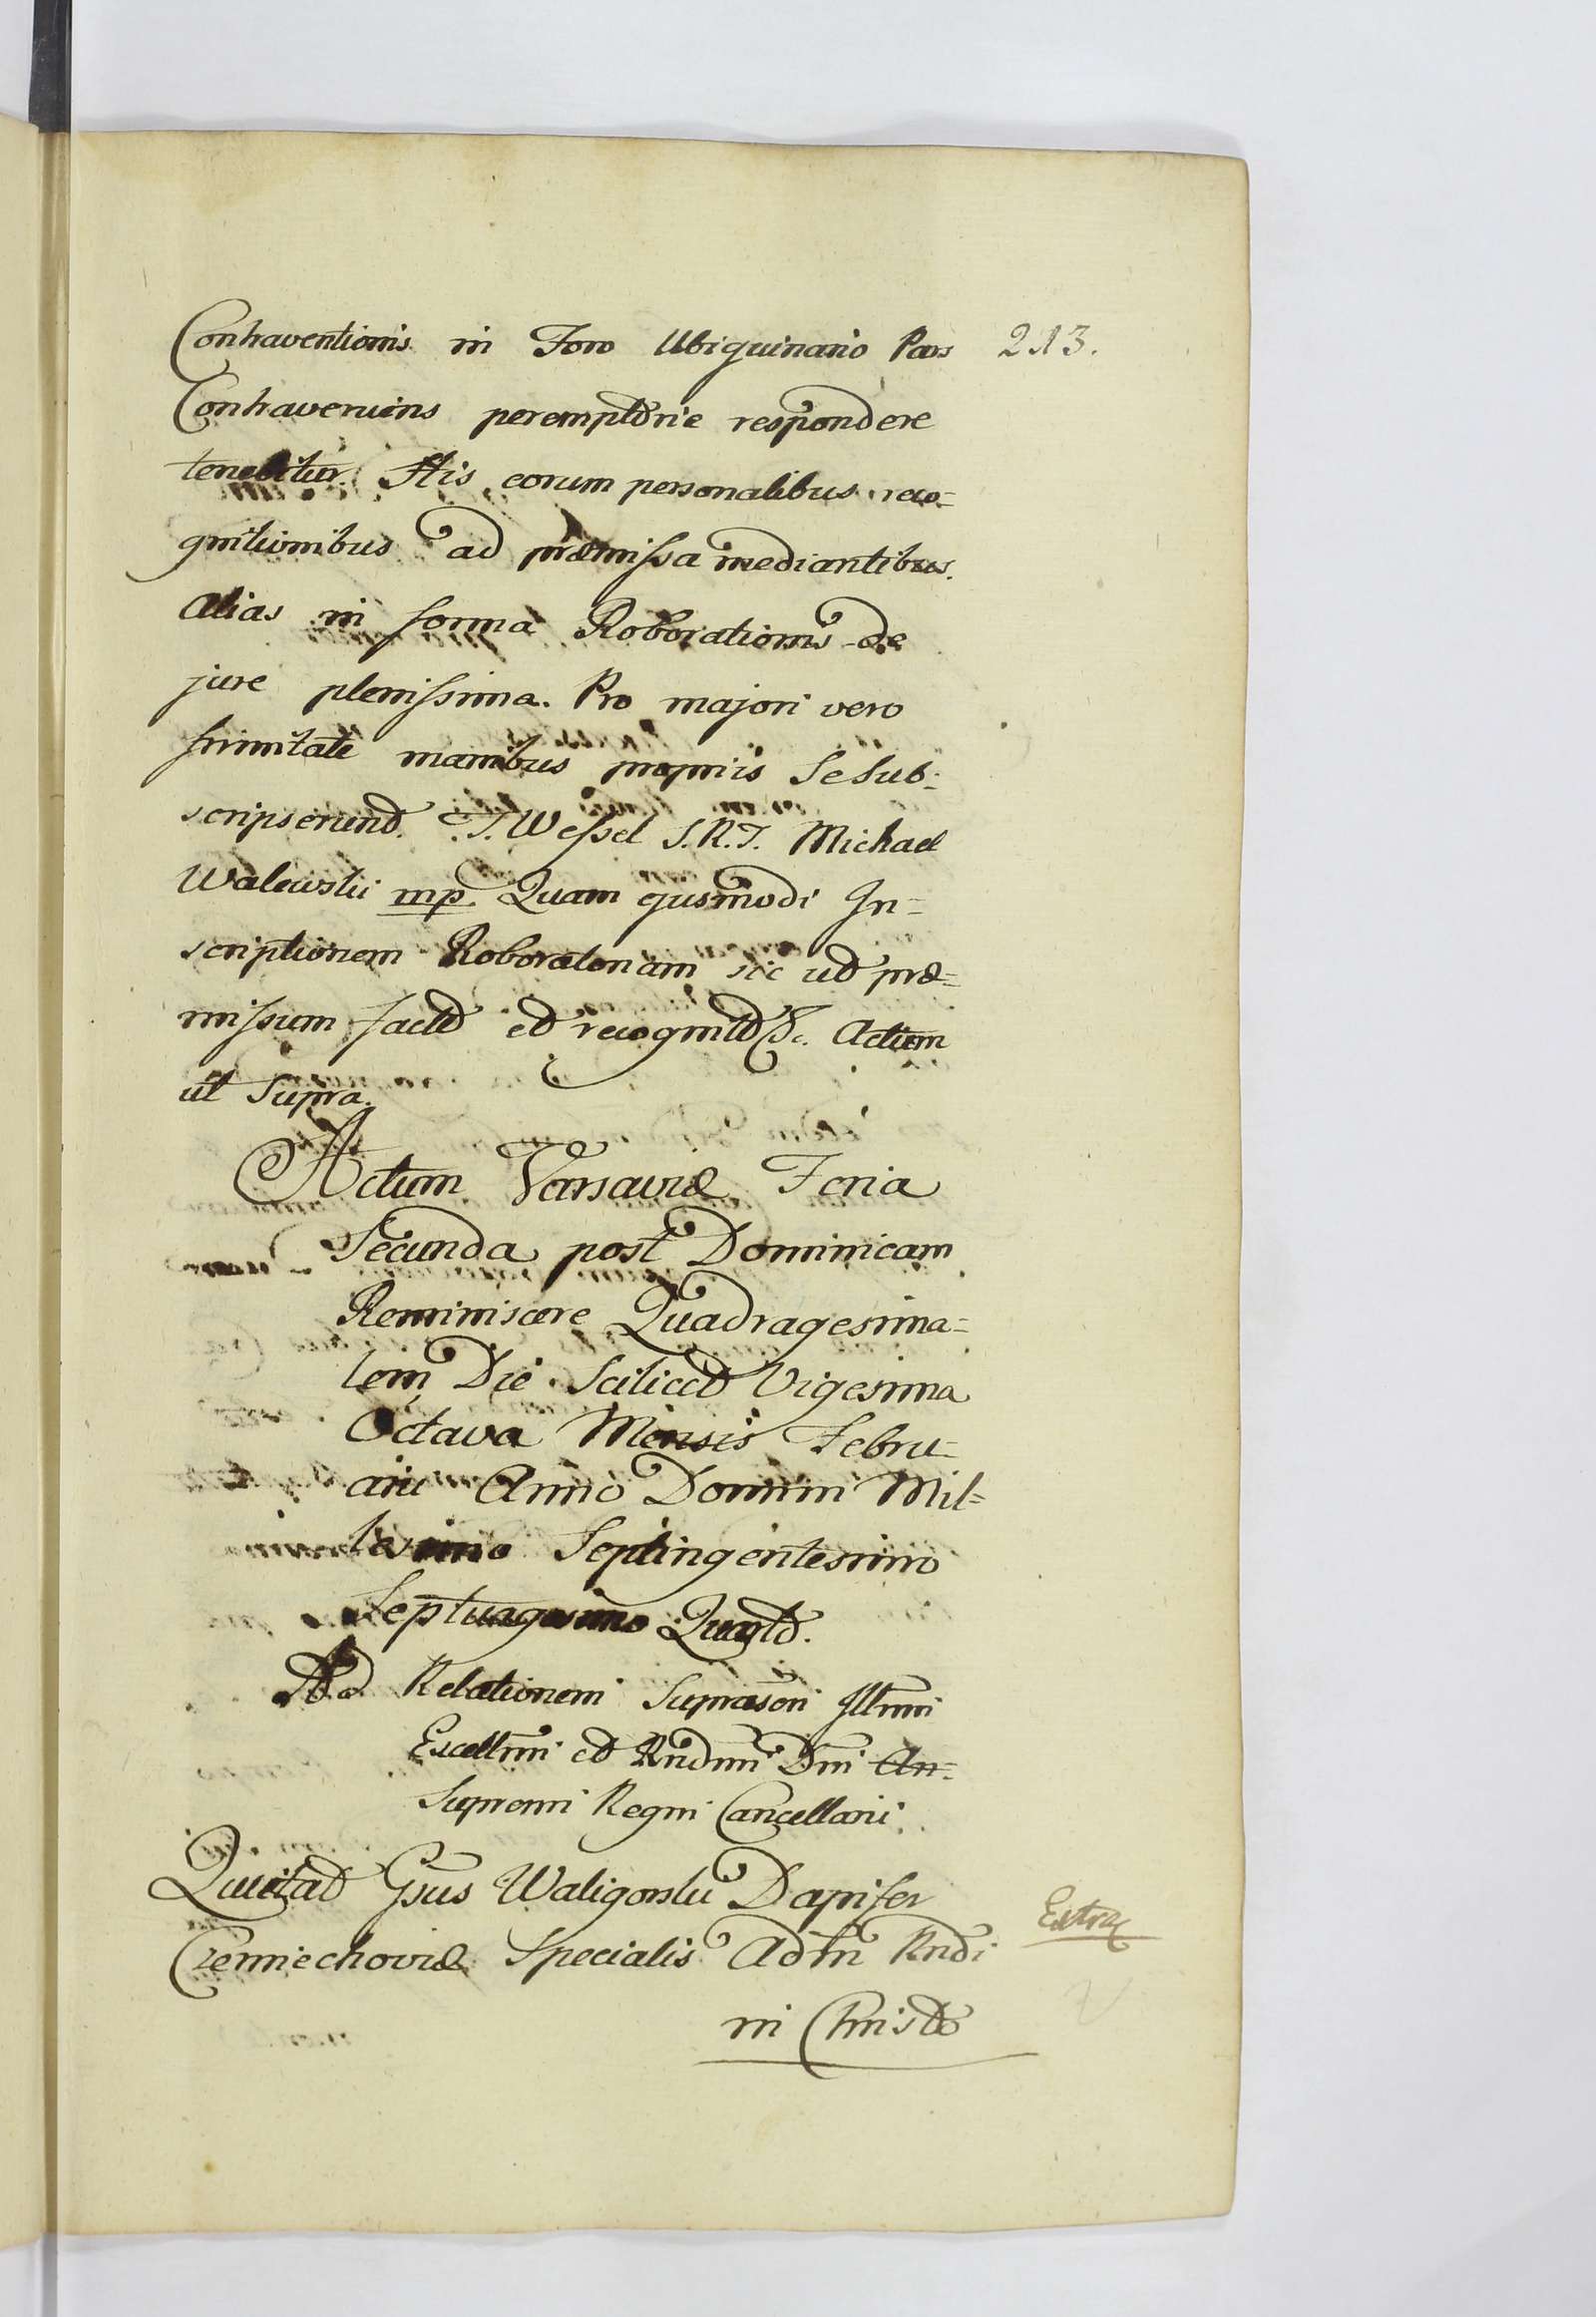 Contraventionis in Foro Ubiquinario Pars 213.
Contraveniens peremptorie respondere
tenebitur. His eorum personalibus reco-
gnitionibus ad præmissa mediantibus.
Alias in forma Roborationis de
jure plenissima. Pro majori vero
firmitate manibus propriis se sub-
scripserunt. T. Wessel S.R.T. Michael
Walewski mp. Quam ejusmodi In-
scriptionem Roboratoriam sic ut præ-
missum facto et recognito &c. Actum
ut supra.
Actum Varsaviæ Feria
Secunda post Dominicam
Reminiscere Quadragesima-
lem Die Scilicet Vigesima
Octava Mensis Febru-
arii Anno Domini Mil-
lesimo Septingentesimo
Septuagesimo Quarto.
Ad Relationem Suprascri Illmi
Excellmi et Rndmi Dni An-
Supremi Regni Cancellarii.
Quietat Gsus Waligorski Dapifer
Czerniechoviæ Specialis Adm Rndi
Extrac
in Christo